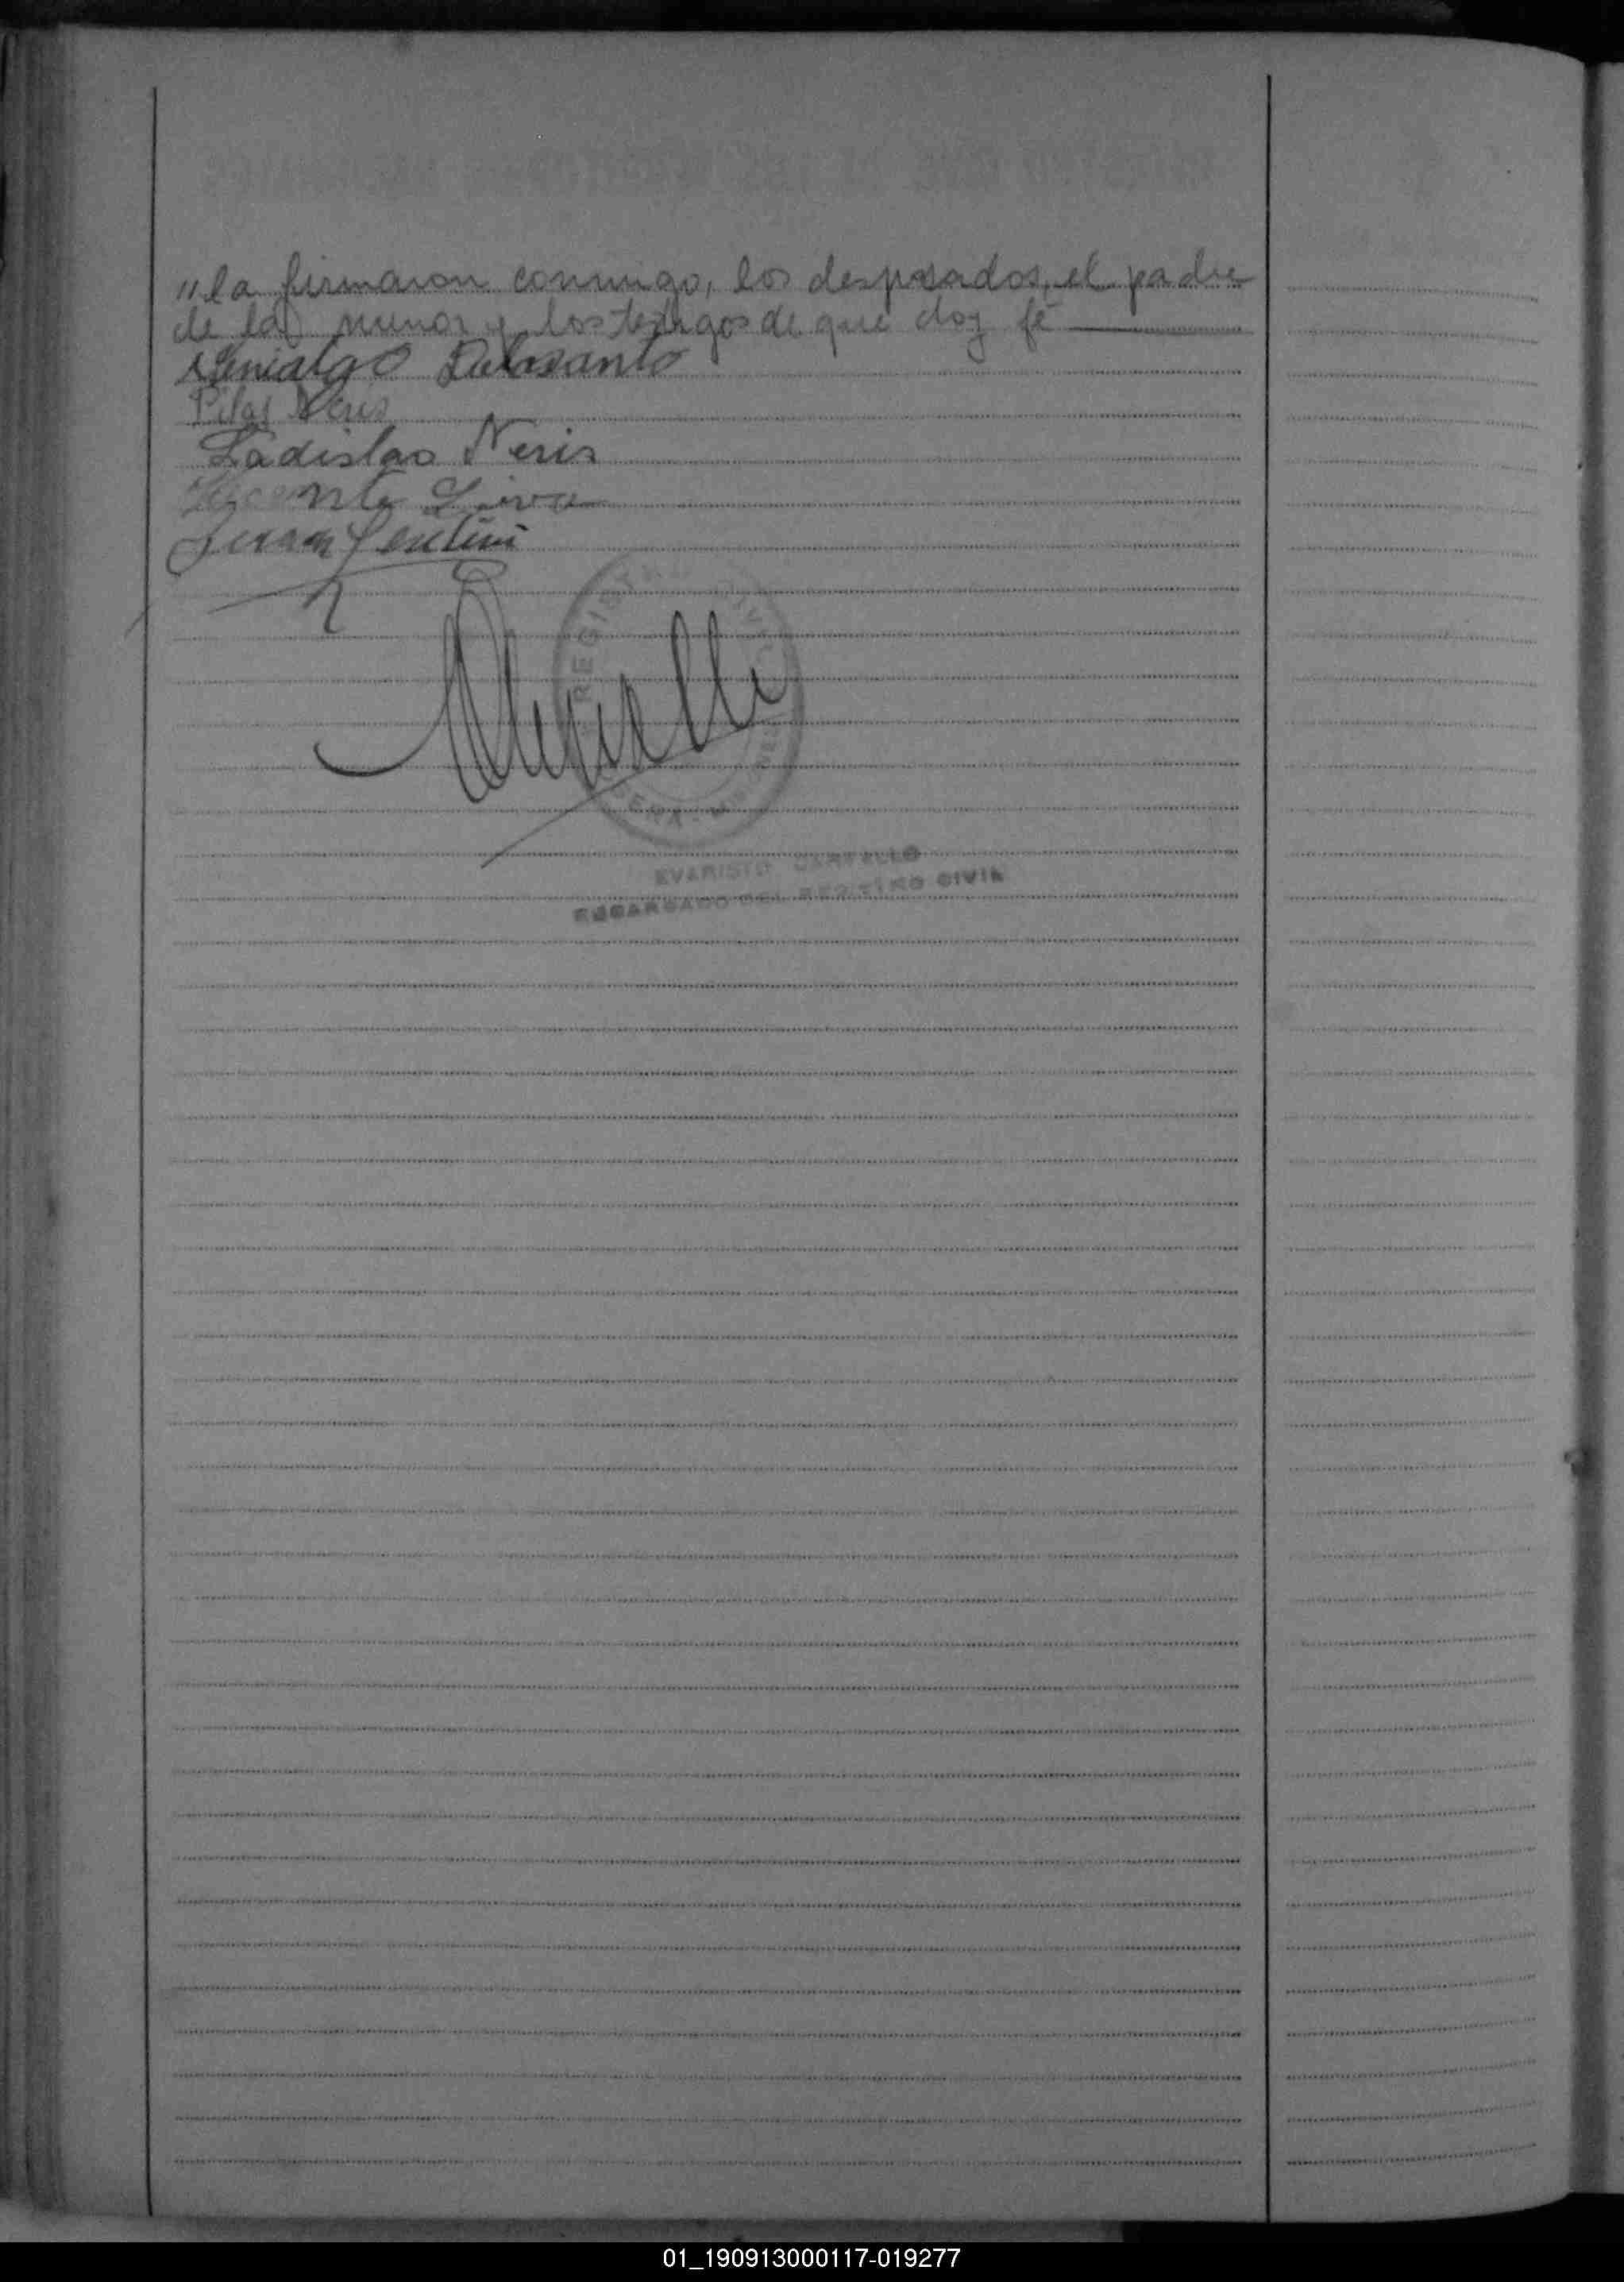 "la firmaron conmigo, los desposados, el padre
de la menor y los testigos de que doy fé
Pilar Neris
Ladislao Neris
Vicente
Juan
REGISTRO CIVIL
EVARISTO
ENCARGADO DEL REGISTRO CIVIL
01_190913000117-019277